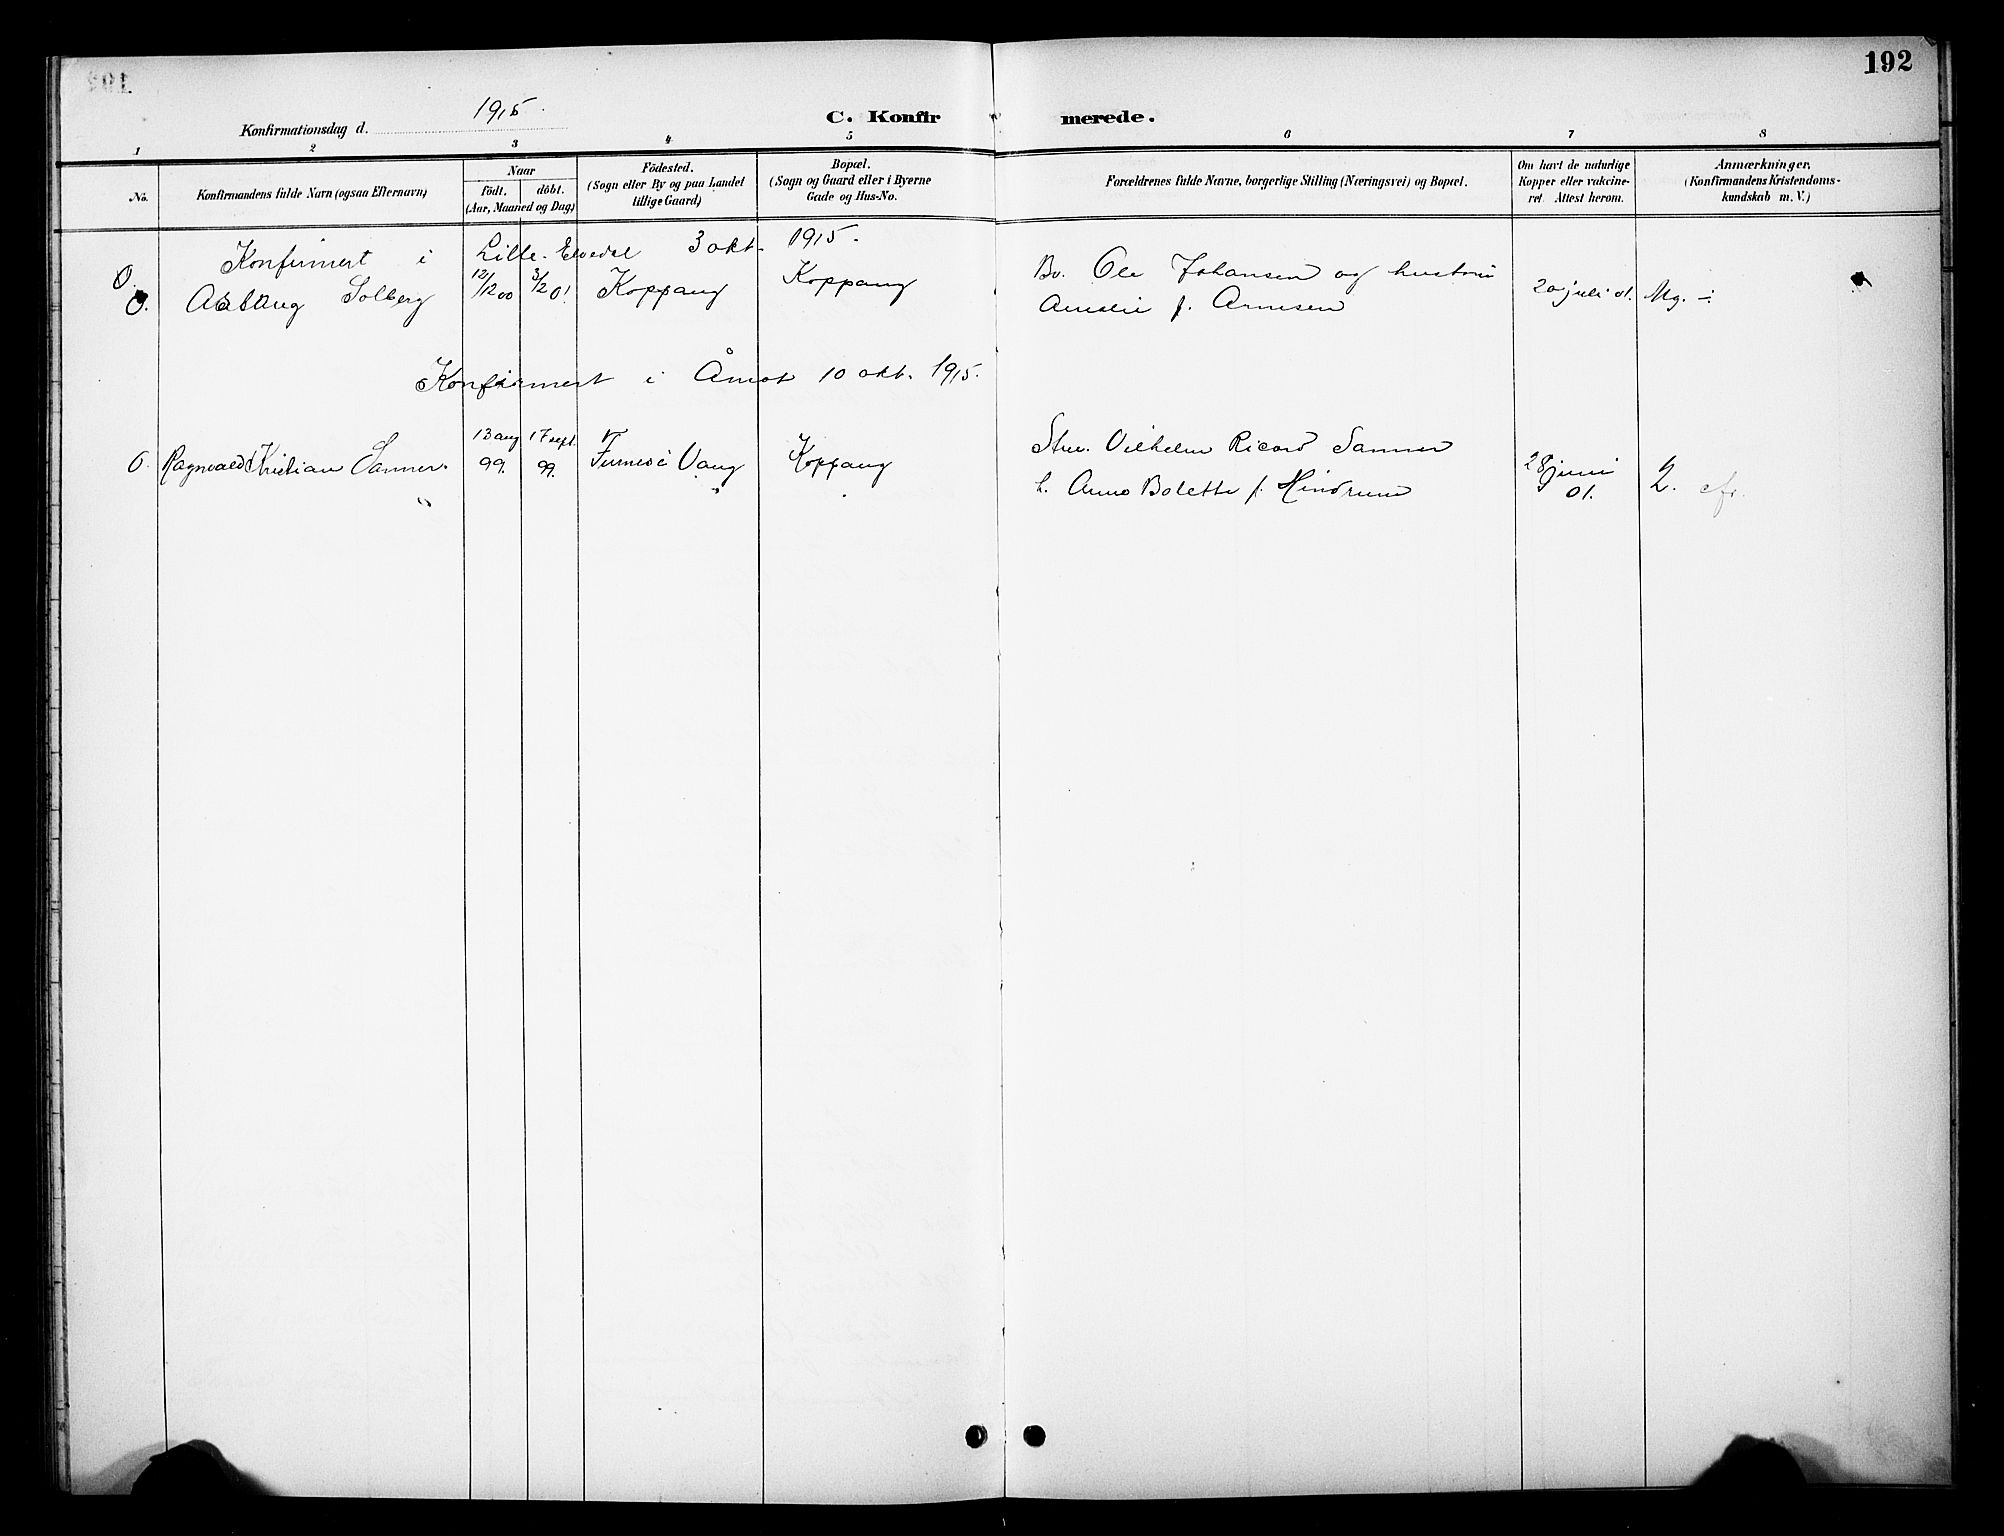 192
Konfirmationsdag d. 1915.
C. Konfirmerede.
1 2 3 4 5 6 7 8
No.
Konfirmandens fulde Navn (ogsaa Efternavn)
Naar
født. døbt.
(Aar, Maaned og Dag)
Födested.
(Sogn eller By og paa Landet
tillige Gaard)
Bopæl.
(Sogn og Gaard eller i Byerne
Gade og Hus-No.
Forældrenes fulde Navne, borgerlige Stilling (Næringsvei) og Bopæl.
Om havt de naturlige
Kopper eller vakcine-
ret. Attest herom.
Anmærkninger,
(Konfirmandens Kristendoms-
kundskab m. V.)
Konfirmert i Lille-Elvedal 3 okt. 1915.
O. Aslaug Solberg 12/12 00 3/2 01 Koppang Koppang Bv. Ole Johansen og hustru
Amelie f. Arnesen 20 juli 01. Mg. ÷
Konfirmert i Åmot 10 okt. 1915.
O. Ragnvald Kristian Sanner. 13 aug 99. 17 sept. 99. Furnes i Vang Koppang Vilhelm Ricard Sanner
h. Anna Bolette f. Hindrum 28 juni 01. 2.